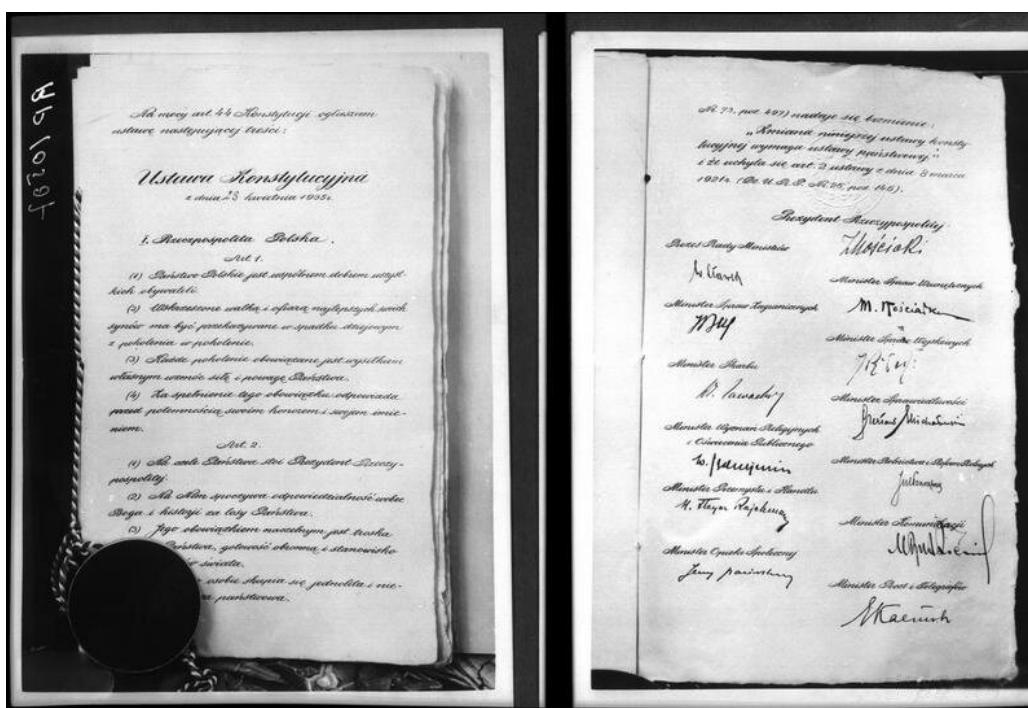 Na mocy art. 44 Konstytucji ogłaszam
ustawę następującej treści:
Ustawa Konstytucyjna
z dnia 23 kwietnia 1935r.
I. Rzeczpospolita Polska.
Art. 1.
(1) Państwo Polskie jest wspólnem dobrem wszyst-
kich obywateli.
(2) Wskrzeszone walką i ofiarą najlepszych swoich
synów ma być przekazywane w spadku dziejowym
z pokolenia w pokolenie.
(3) Każde pokolenie obowiązane jest wysiłkiem
własnym wzmóc siłę i powagę Państwa.
(4) Za spełnienie tego obowiązku odpowiada
przed potomnością swoim honorem i swojem imie-
niem.
Art. 2.
(1) Na czele Państwa stoi Prezydent Rzeczy-
pospolitej.
(2) Na Nim spoczywa odpowiedzialność wobec
Boga i historji za losy Państwa.
(3) Jego obowiązkiem naczelnym jest troska
Państwa, gotowość obronną i stanowisko
świata.
osobie skupia się jednolita i nie-
państwowa.
Nr. 73, poz. 497) nadaje się brzmienie:
„Zmiana niniejszej ustawy konsty-
tucyjnej wymaga ustawy państwowej."
i że uchyla się art. 2 ustawy z dnia 8 marca
1921r. (Dz. U. R. P. Nr. 25, poz. 146).
Prezydent Rzeczypospolitej
I Mościcki
Prezes Rady Ministrów
W Sławek
Minister Spraw Wewnętrznych
M. Kościałkow
Minister Spraw Zagranicznych
Minister Spraw Wojskowych
Minister Skarbu
Minister Sprawiedliwości
Czesław Michałowski
Minister Wyznań Religijnych
i Oświecenia Publicznego
W. Jędrzejewicz
Minister Rolnictwa i Reform Rolnych
Minister Przemysłu i Handlu
H. Floyar Rajchman
Minister Komunikacji
Minister Opieki Społecznej
Minister Poczt i Telegrafów
EKaliński